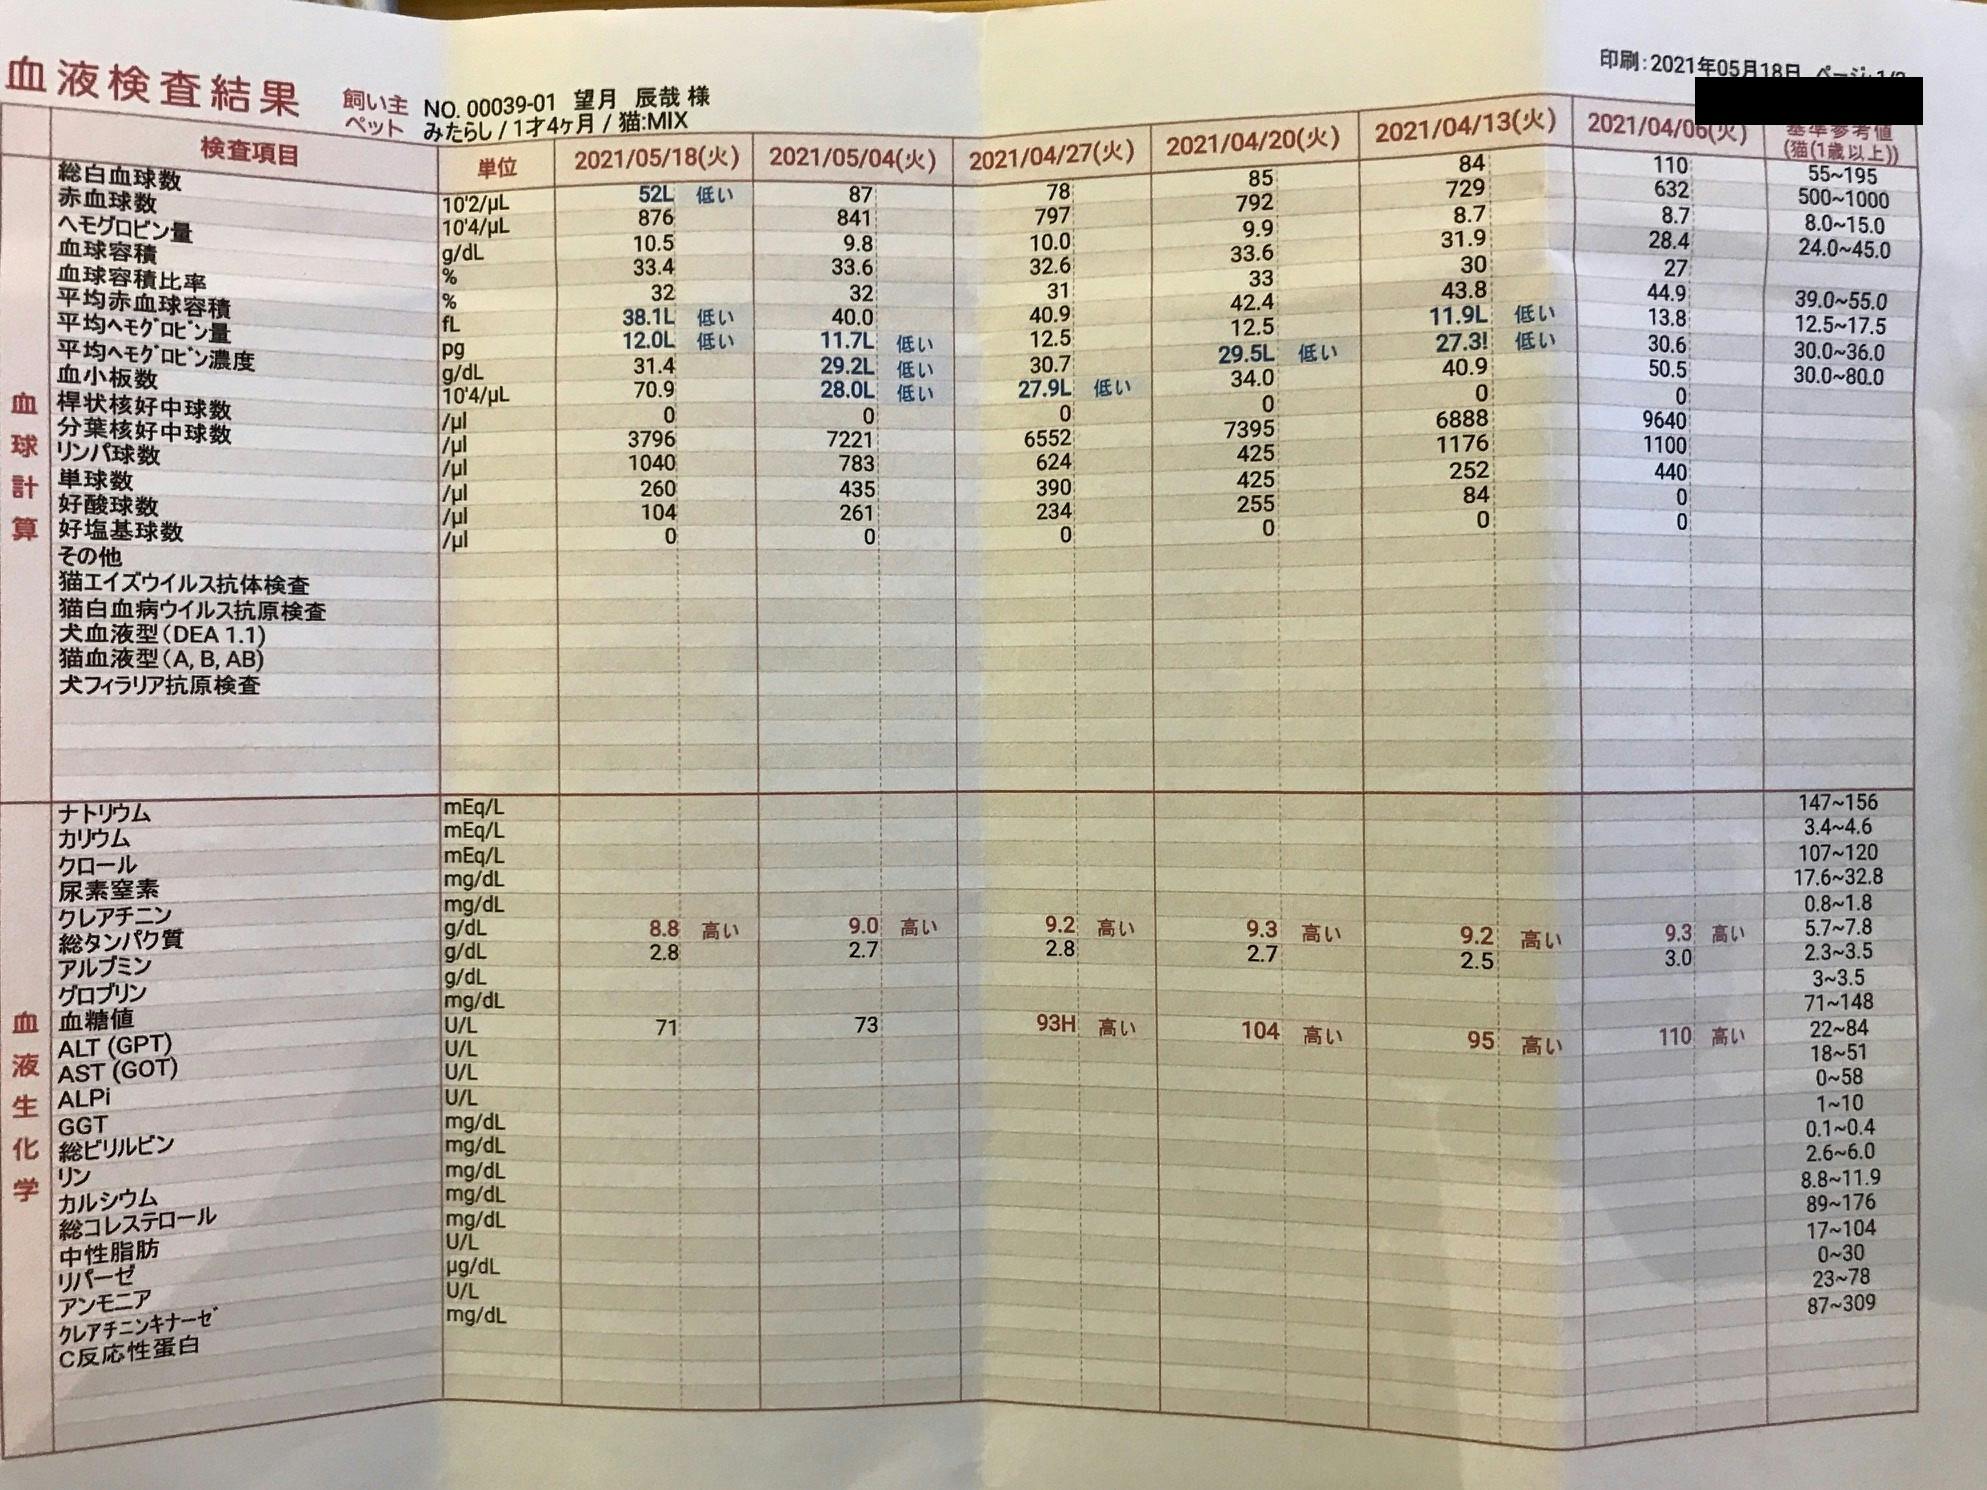 印刷:2021年05月18日
血液検査結果
飼い主 NO. 00039-01 望月 辰哉 様
ペット みたらし / 1才4ヶ月 / 猫:MIX
検査項目 単位 2021/05/18(火) 2021/05/04(火) 2021/04/27(火) 2021/04/20(火) 2021/04/13(火) 2021/04/06(火) 基準参考値
(猫(1歳以上))
血球計算
総白血球数 10'2/μL 52L 低い 87 78 85 84 110 55~195
赤血球数 10'4/μL 876 841 797 792 729 632 500~1000
ヘモグロビン量 g/dL 10.5 9.8 10.0 9.9 8.7 8.7 8.0~15.0
血球容積 % 33.4 33.6 32.6 33.6 31.9 28.4 24.0~45.0
血球容積比率 % 32 32 31 33 30 27
平均赤血球容積 fL 38.1L 低い 40.0 40.9 42.4 43.8 44.9 39.0~55.0
平均ヘモグロビン量 pg 12.0L 低い 11.7L 低い 12.5 12.5 11.9L 低い 13.8 12.5~17.5
平均ヘモグロビン濃度 g/dL 31.4 29.2L 低い 30.7 29.5L 低い 27.3! 低い 30.6 30.0~36.0
血小板数 10'4/μL 70.9 28.0L 低い 27.9L 低い 34.0 40.9 50.5 30.0~80.0
桿状核好中球数 /μl 0 0 0 0 0 0
分葉核好中球数 /μl 3796 7221 6552 7395 6888 9640
リンパ球数 /μl 1040 783 624 425 1176 1100
単球数 /μl 260 435 390 425 252 440
好酸球数 /μl 104 261 234 255 84 0
好塩基球数 /μl 0 0 0 0 0 0
その他
猫エイズウイルス抗体検査
猫白血病ウイルス抗原検査
犬血液型(DEA 1.1)
猫血液型(A, B, AB)
犬フィラリア抗原検査
血液生化学
ナトリウム mEq/L 147~156
カリウム mEq/L 3.4~4.6
クロール mEq/L 107~120
尿素窒素 mg/dL 17.6~32.8
クレアチニン mg/dL 0.8~1.8
総タンパク質 g/dL 8.8 高い 9.0 高い 9.2 高い 9.3 高い 9.2 高い 9.3 高い 5.7~7.8
アルブミン g/dL 2.8 2.7 2.8 2.7 2.5 3.0 2.3~3.5
グロブリン g/dL 3~3.5
血糖値 mg/dL 71~148
ALT (GPT) U/L 71 73 93H 高い 104 高い 95 高い 110 高い 22~84
AST (GOT) U/L 18~51
ALPi U/L 0~58
GGT U/L 1~10
総ビリルビン mg/dL 0.1~0.4
リン mg/dL 2.6~6.0
カルシウム mg/dL 8.8~11.9
総コレステロール mg/dL 89~176
中性脂肪 mg/dL 17~104
リパーゼ U/L 0~30
アンモニア μg/dL 23~78
クレアチニンキナーゼ U/L 87~309
C反応性蛋白 mg/dL